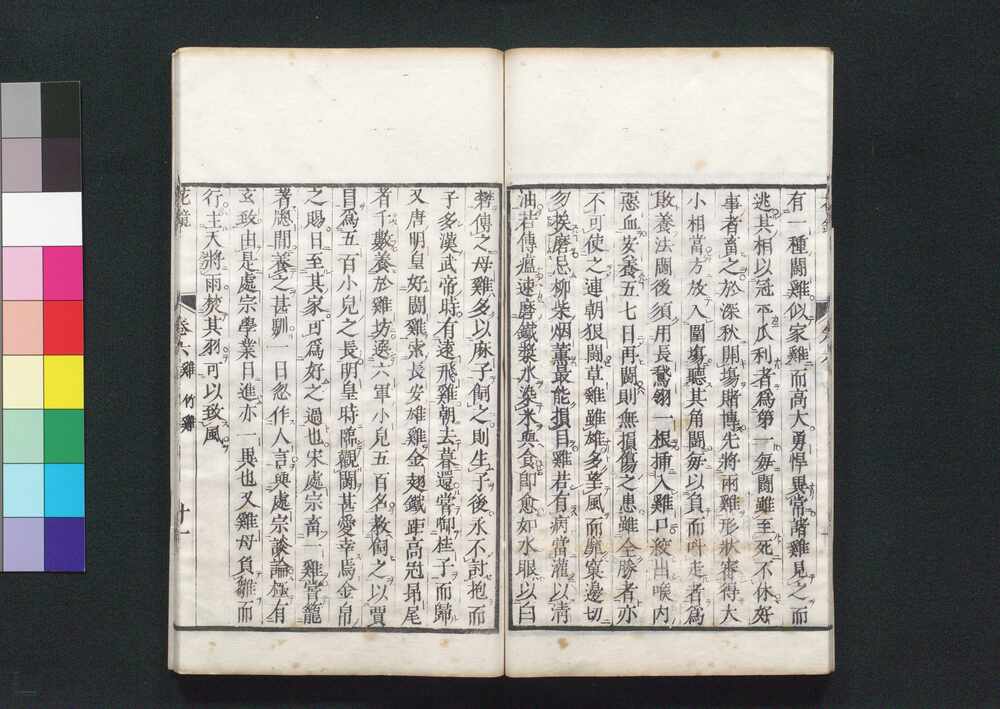 有一種鬪雞似家雞而高大勇悍異常諸雞見之而
逃其相以冠平爪利者爲第一毎鬪雖至死不休好
事者畜之於深秋開塲賭博先將兩雞形狀審得大
小相當方放入圍塲聽其角鬪毎以負而叫走者爲
敗養法鬪後須用長鵞翎一根挿入雞口絞出喉内
惡血安養五七日再鬪則無損傷之患雖全勝者亦
不可使之連朝狠鬪草雞雖雄多望風而靡窠邊切
勿挨磨忌柳柴烟薰最能損目雞若有病當灌以清
油若傳瘟速磨鐵漿水染米與食即愈如水眼以白
礬傳之母雞多以麻子飼之則生子後永不討抱而
子多漢武帝時有遠飛雞朝去暮還嘗啣桂子而歸
又唐明皇好鬪雞索長安雄雞金翅鐵距高冠昻尾
者千數養於雞坊選六軍小兒五百名教飼之以賈
昌爲五百小兒之長明皇時臨觀鬪甚愛幸焉金帛
之賜日至其家可爲好之過也宋處宗畜一雞嘗籠
著牕間養之甚馴一日忽作人言與處宗談論極有
玄致由是處宗學業日進亦一異也又雞母負雛而
行主天將雨焚其羽可以致風
花鏡 卷六 雞 竹雞 十一